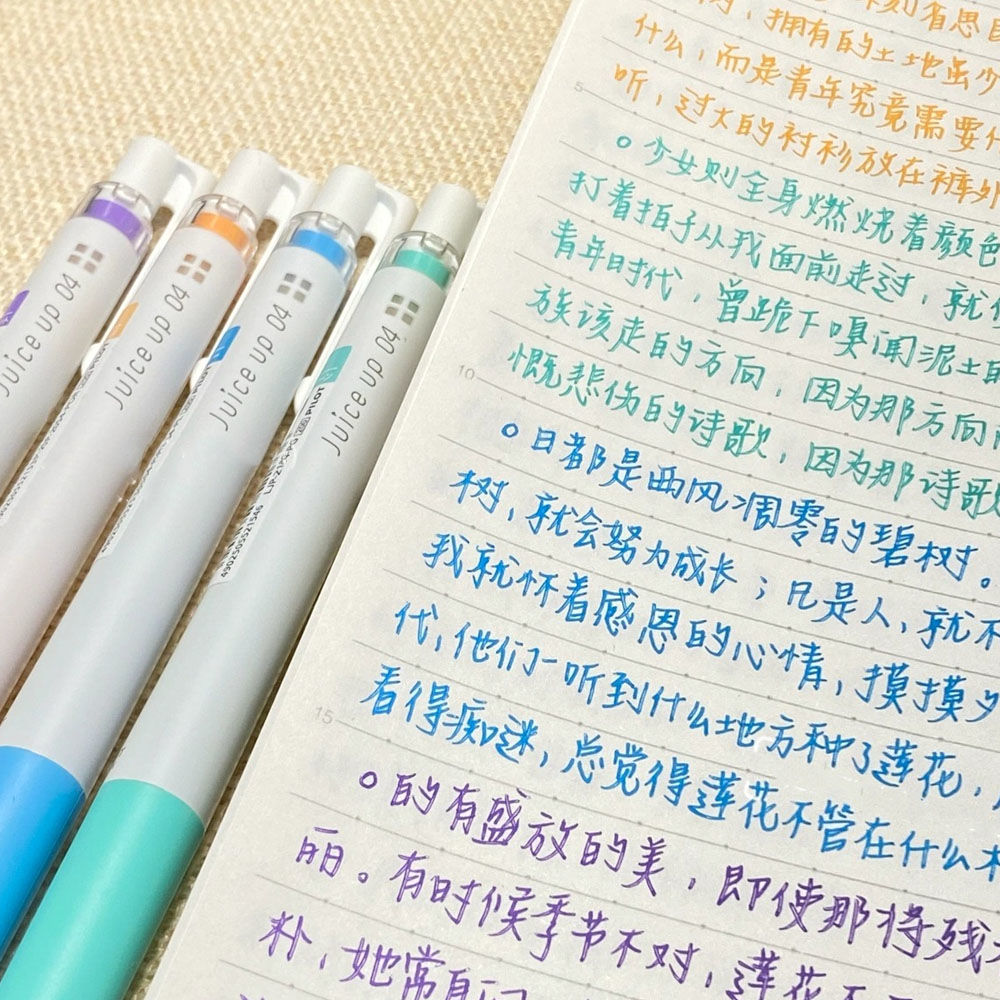 Juice up 04
Juice up 04
Juice up 04
Juice up 04
PILOT
4902505521546
5
10
15
什么，而是青年究竟需要什
听，过大的衬衫放在裤外
，拥有的土地虽少
。少女则全身燃烧着颜色
打着拍子从我面前走过，就
青年时代，曾跪下嗅闻泥土的
族该走的方向，因为那方向
慨悲伤的诗歌，因为那诗歌
。日都是西风凋零的碧树。
树，就会努力成长；凡是人，就不
我就怀着感恩的心情，摸摸夕
代，他们一听到什么地方种了莲花，
看得痴迷，总觉得莲花不管在什么
。的有盛放的美，即使那将残
丽。有时候季节不对，莲花
朴，她常自